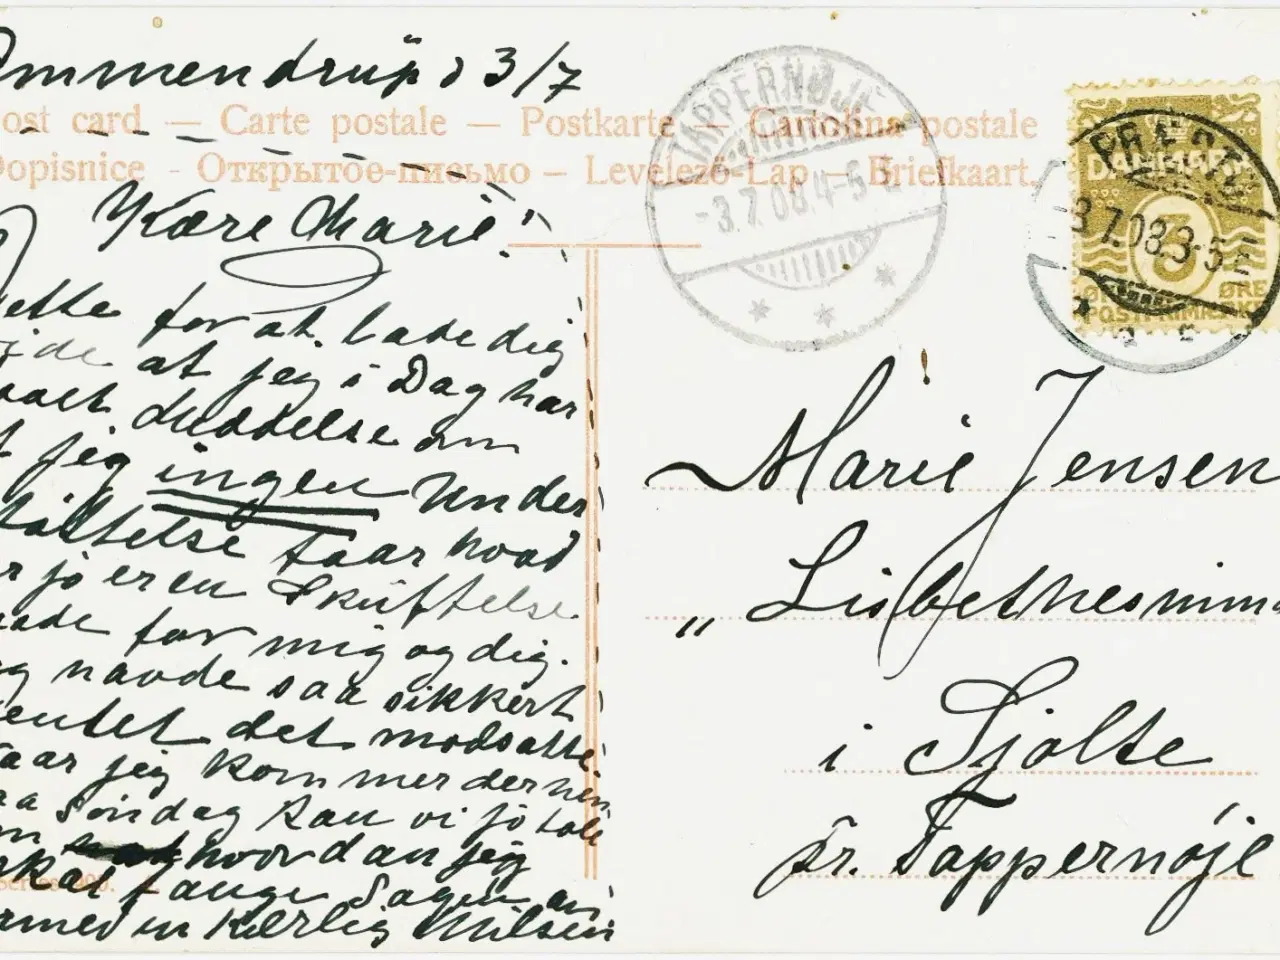 Ommendrup d 3/7
ost card — Carte postale — Postkarte — Cartolina postale
Dopisnice - Открытое-письмо — Levelező-Lap — Briefkaart.
Kære Marie!
ette for at lade dig
ide at jeg i Dag har
Meddelse om
t jeg ingen Under
støttelse faar hvad
r jo er en Skuffelse
aade for mig og dig.
eg havde saa sikkert
entet det modsatte.
aar jeg kommer derned
aa Söndag kan vi jo tale
om hvordan jeg
skal fange Sagen an
ermed en Kærlig Hilsen
series 900.
TAPPERNØJE
-3.7.08.4-5 E
PRÆSTØ
DANMARK
3.7.08.3-5 E
3
ØRE ØRE
POSTFRIMÆRKE
Marie Jensen
"Lisbethesminde
i Sjolte
pr. Tappernøje